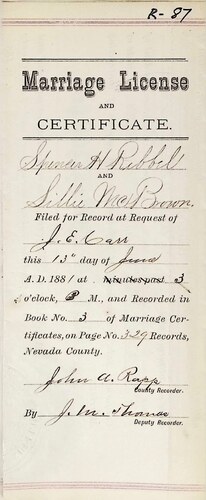 R-87
Marriage License
AND
CERTIFICATE.
Spencer H Ribbel
AND
Lillie McBrown
Filed for Record at Request of
J. E. Carr
this 13" day of June
A. D. 1881 at minutes past 3
o'clock, P M., and Recorded in
Book No. 3 of Marriage Cer-
tificates, on Page No. 329 Records,
Nevada County.
John A. Rapp
County Recorder.
By J. M. Thomas
Deputy Recorder.